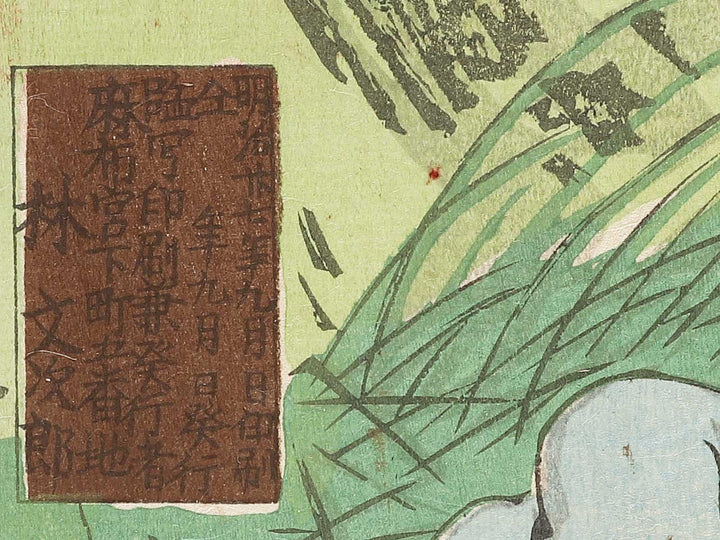 明治卅七年九月 日印刷
仝 年九月 日発行
臨写印刷兼発行者
麻布宮下町五番地
林文次郎